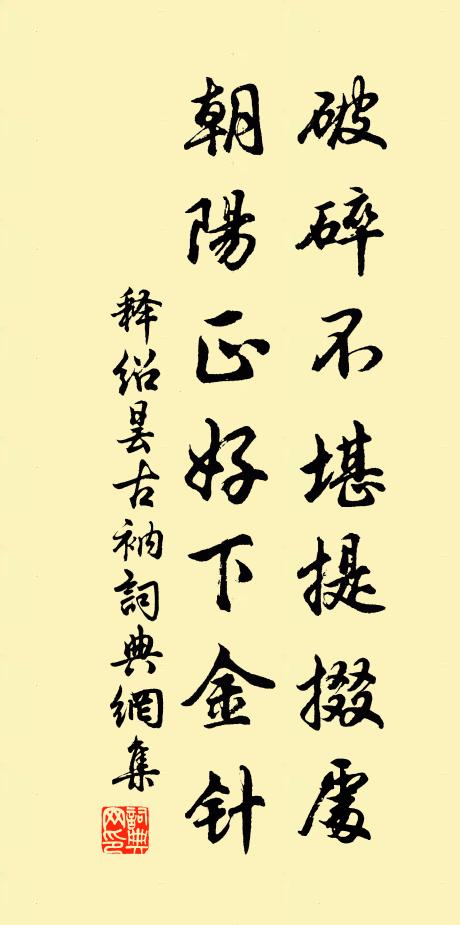 破碎不堪提掇處
朝陽正好下金针
释绍昙古衲詞典網集
詞典网印